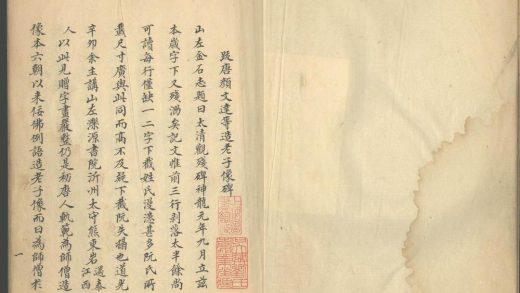 跋唐顏文達等造老子像碑
山左金石志題曰太清觀殘碑神龍元年九月立茲
本歲字下又殘泐矣記文惟前三行剥落太半餘尚
可讀每行僅缺一二字下截姓氏漫漶甚多阮氏所
載尺寸廣與此同而高不及疑下截阮失搨也道光
辛卯余主講山左濼源書院沂州太守熊東岩遇泰江西
人以此見贈字畫嚴整仍是初唐人軌範為師僧造
像本六朝以來佞佛例語造老子像而曰為師僧於
一